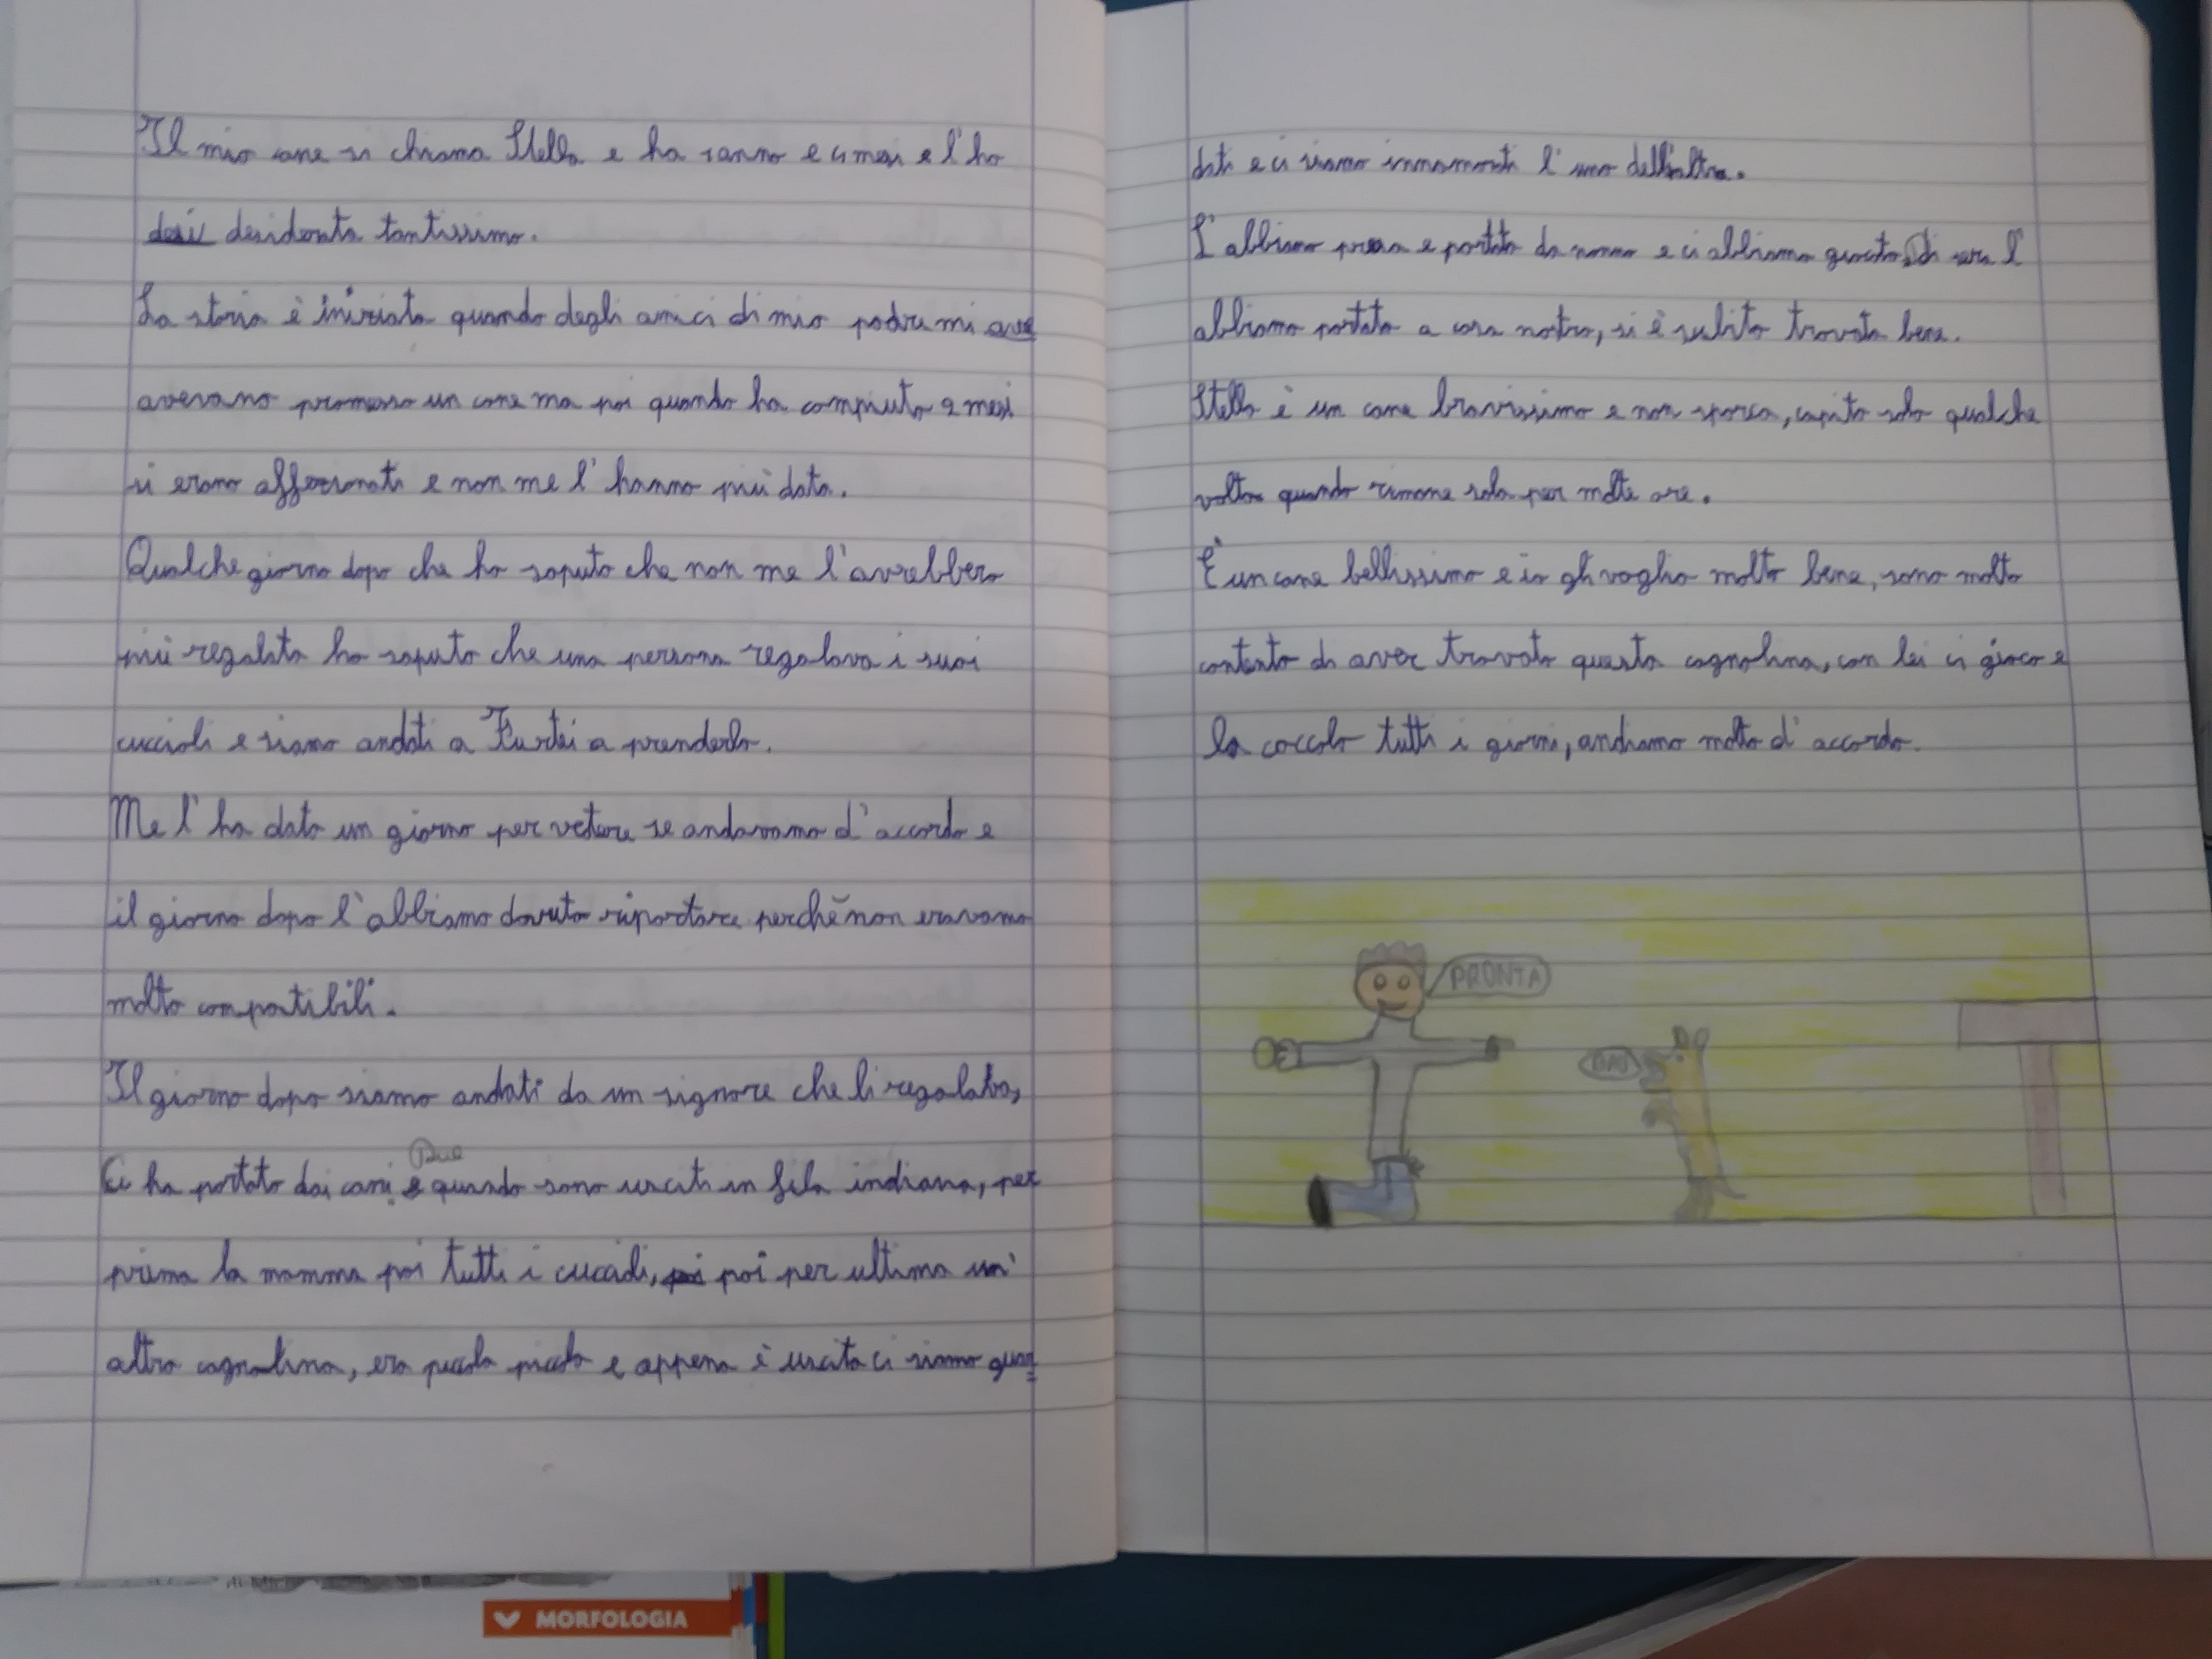 Il mio cane si chiama Stella e ha 1 anno e 4 mesi e l'ho
desi desiderata tantissimo.
La storia è iniziata quando degli amici di mio padre mi ave
avevano promesso un cane ma poi quando ha compiuto 2 mesi
si erano affezionati e non me l'hanno più data.
Qualche giorno dopo che ho saputo che non me l'avrebbero
più regalata ho saputo che una persona regalava i suoi
cuccioli e siamo andati a Furtei a prenderlo.
Me l'ha dato un giorno per vedere se andavamo d'accordo e
il giorno dopo l'abbiamo dovuto riportare perché non eravamo
molto compatibili.
Il giorno dopo siamo andati da un signore che li regalava,
Due
Ci ha portato dai cani e quando sono usciti in fila indiana, per
prima la mamma poi tutti i cuccioli, poi poi per ultima un'
altra cagnolina, era piccola piccola e appena è uscita ci siamo guar
dati e ci siamo innamorati l'uno dell'altra.
L'abbiamo presa e portata da nonno e ci abbiamo giocato. Di sera l'
abbiamo portata a casa nostra, si è subito trovata bene.
Stella è un cane bravissimo e non sporca, capita solo qualche
volta quando rimane sola per molte ore.
È un cane bellissimo e io gli voglio molto bene, sono molto
contento di aver trovato questa cagnolina, con lei ci gioco e
la coccolo tutti i giorni, andiamo molto d'accordo.
PRONTA
BAU
MORFOLOGIA